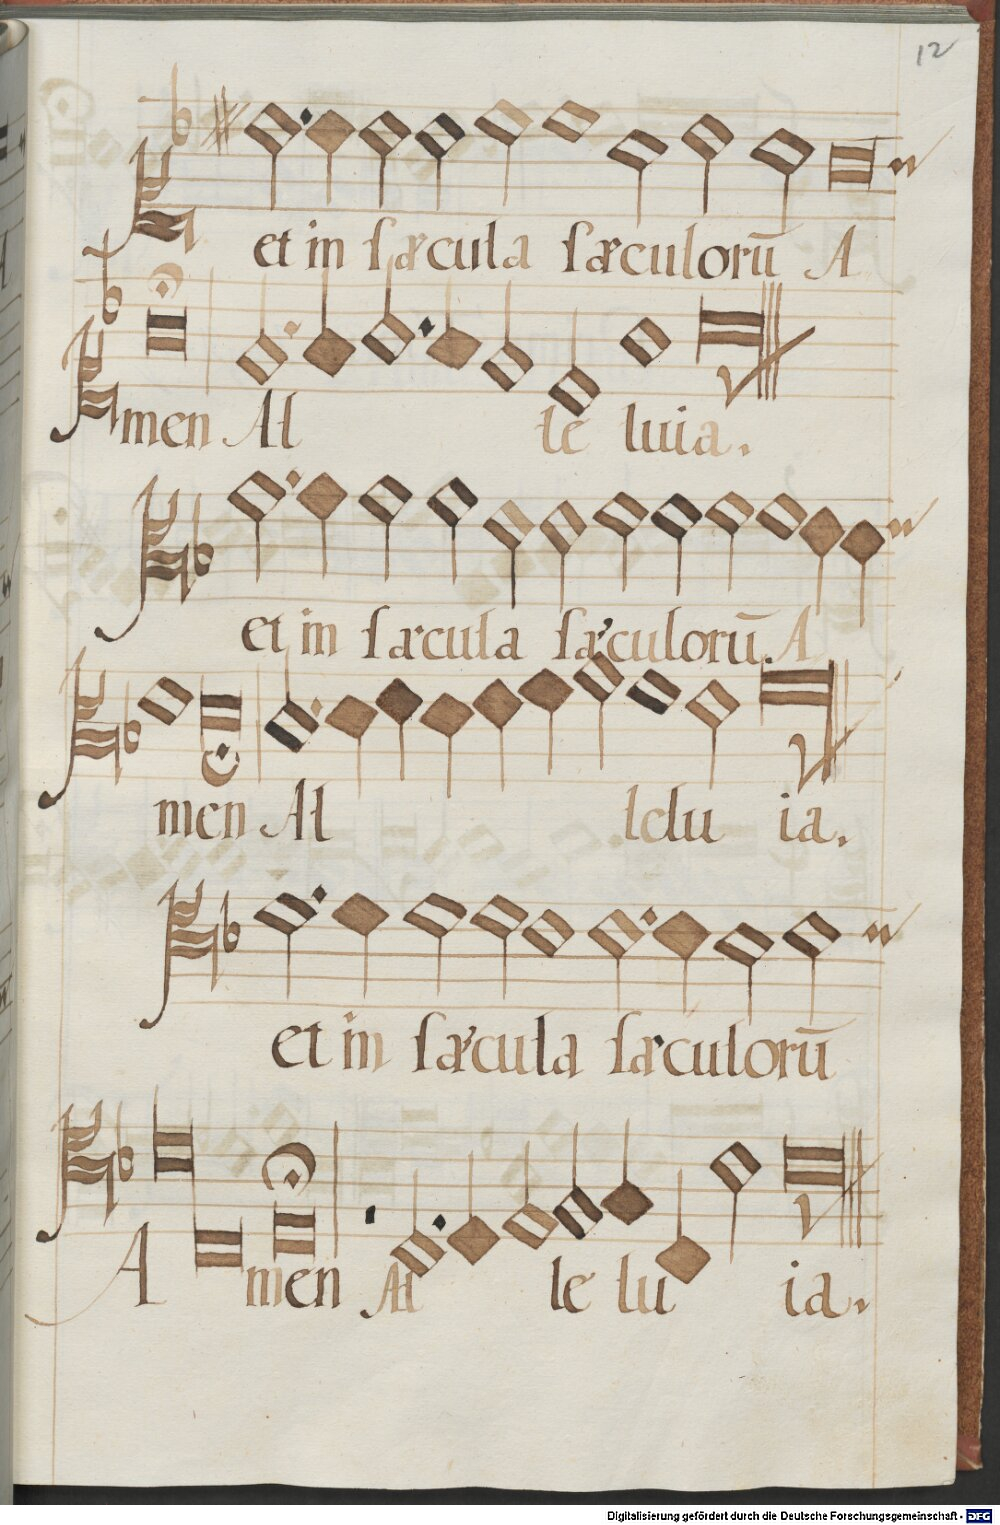 12
et in sæcula sæculorū A
men Al le luia.
et in sæcula sæculorū A
men Al lelu ia.
et in sæcula sæculorū
A men Al le lu ia.
Digitalisierung gefördert durch die Deutsche Forschungsgemeinschaft - DFG